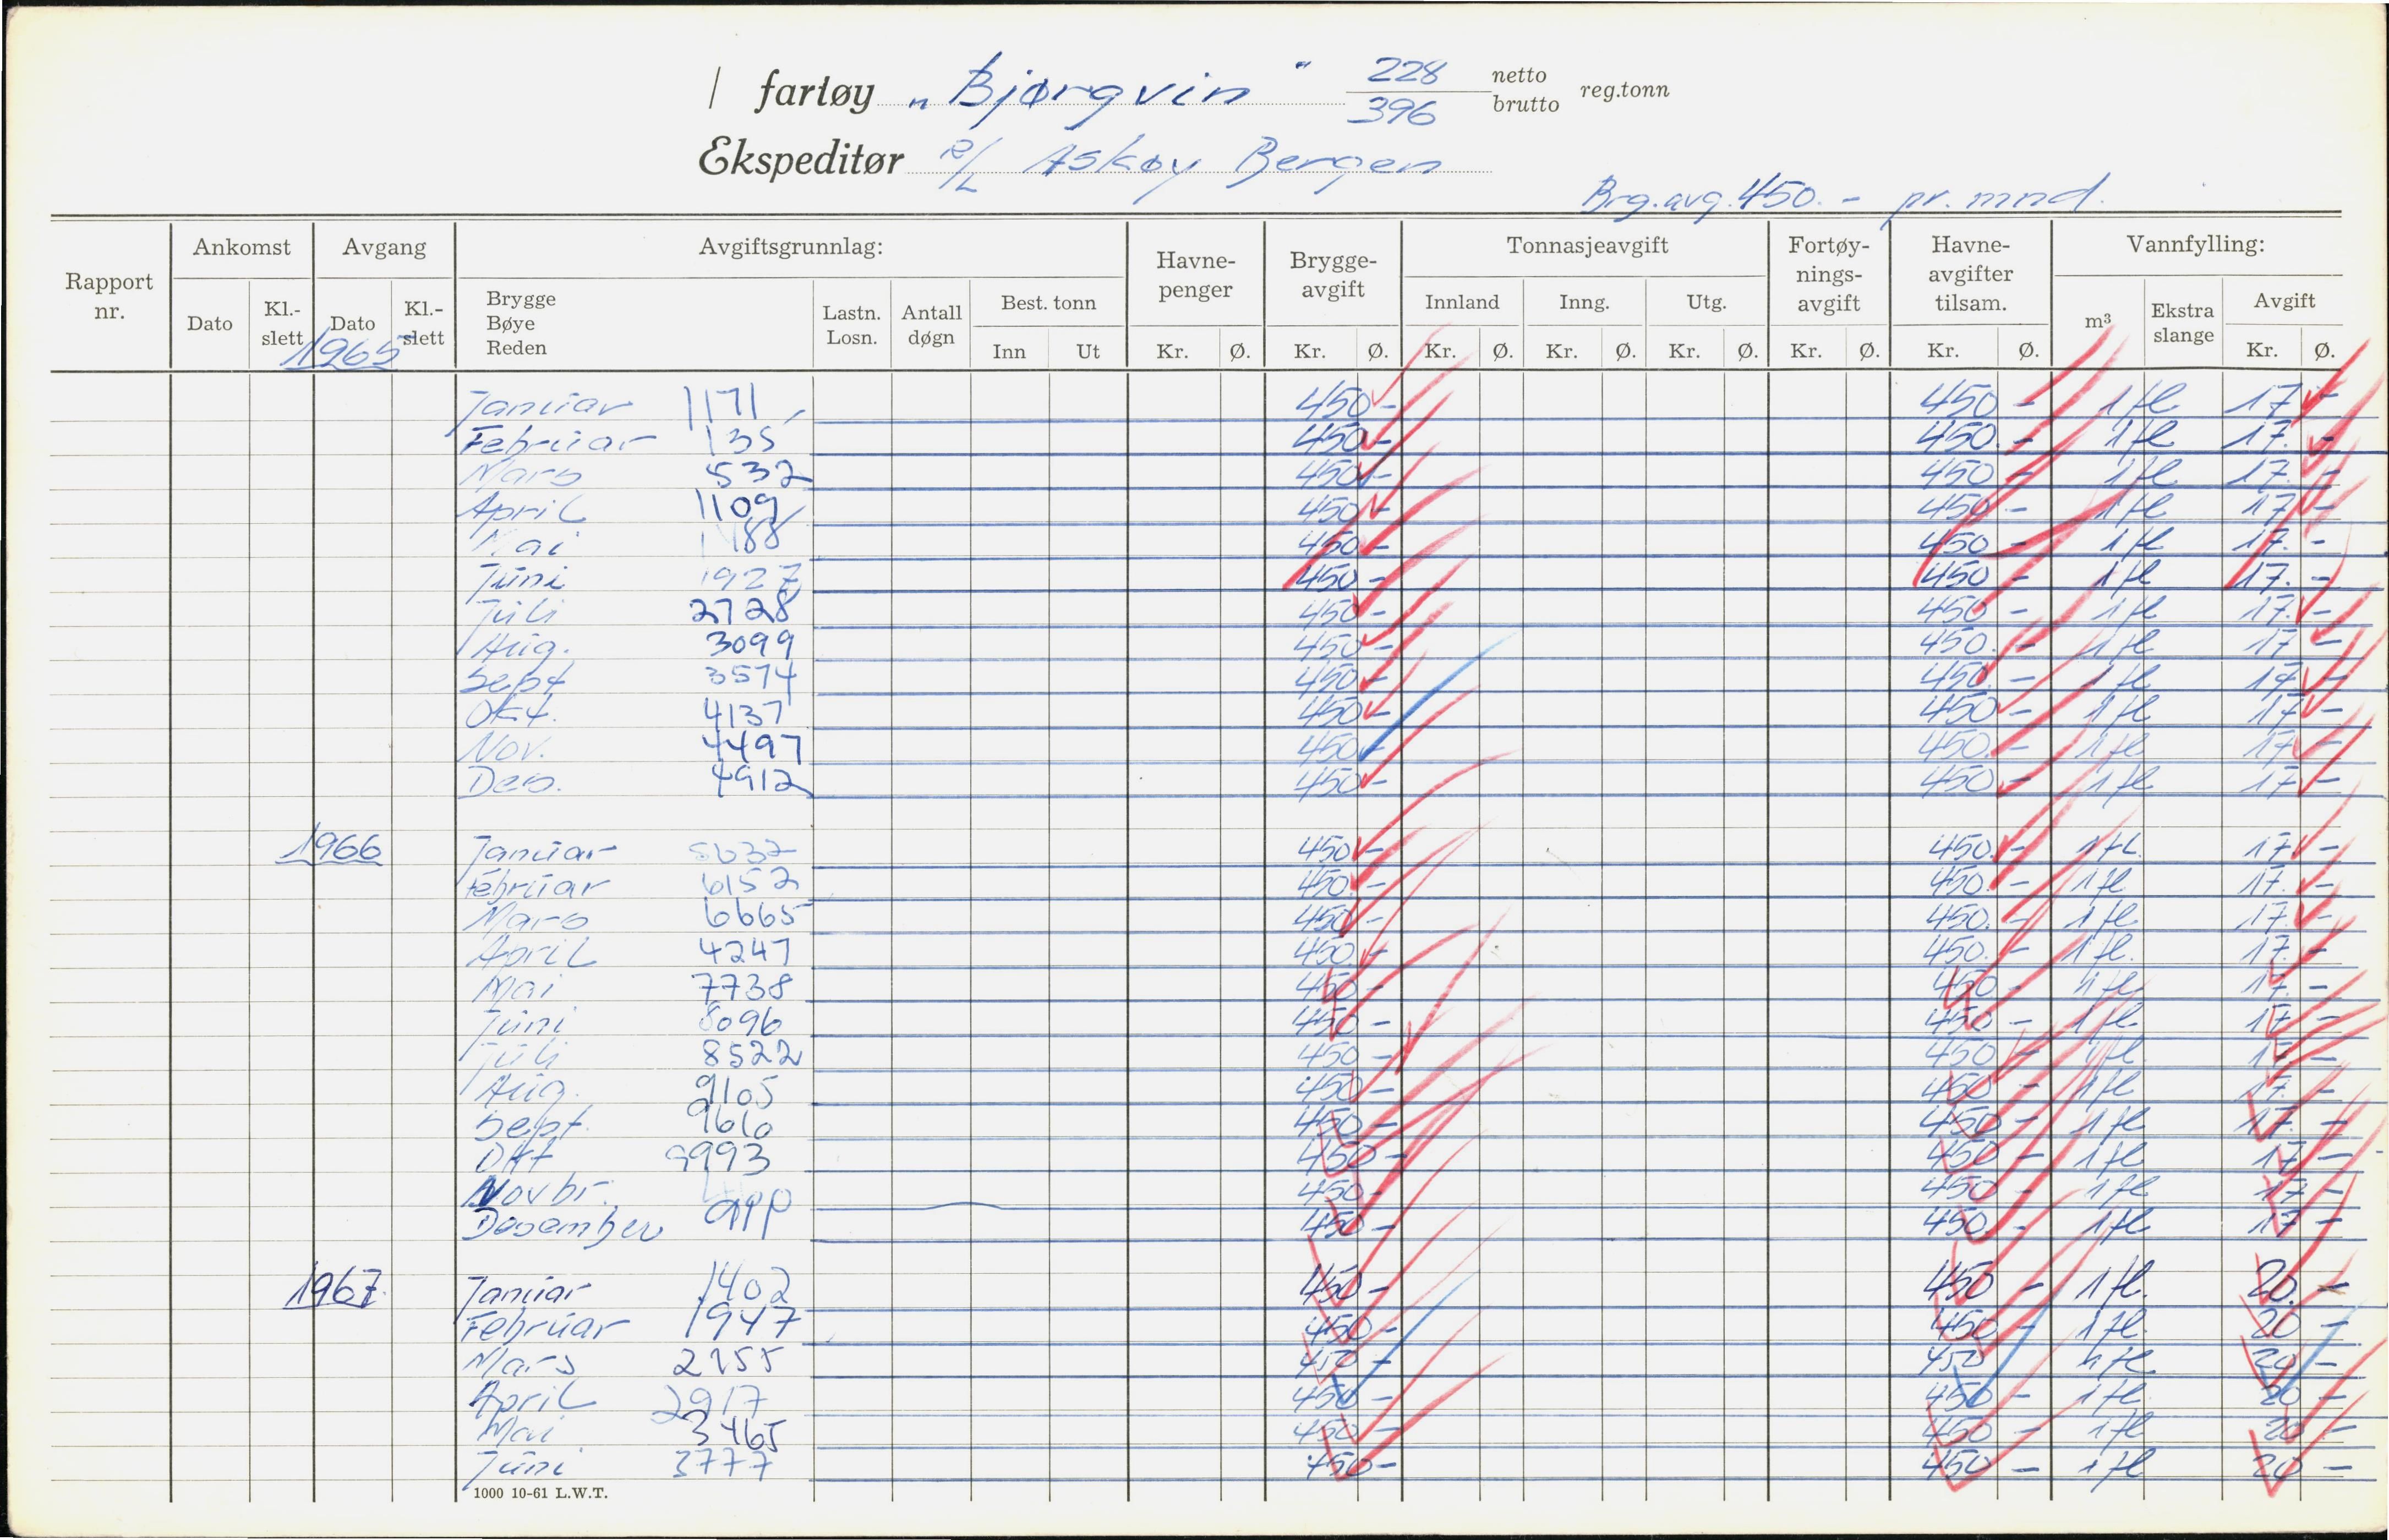 / fartøy „Bjørgvin" 228 netto 396 brutto reg.tonn
Ekspeditør R/L Askøy Bergen
Brg.avg. 450.- pr. mnd.
Rapport nr. Ankomst Avgang Avgiftsgrunnlag: Havne-penger Brygge-avgift Tonnasjeavgift Fortøy-nings-avgift Havne-avgifter tilsam. Vannfylling:
Dato Kl.-slett Dato Kl.-slett Brygge Bøye Reden Lastn. Losn. Antall døgn Best. tonn Innland Inng. Utg. m³ Ekstra slange Avgift
Inn Ut Kr. Ø. Kr. Ø. Kr. Ø. Kr. Ø. Kr. Ø. Kr. Ø. Kr. Ø. Kr. Ø.
1965
Januar 1171 450- 450- 1 fl 17.-
Februar 135 450- 450.- 1 fl 17.-
Mars 532 450- 450- 1 fl 17.-
April 1109 450- 450- 1 fl 17-
Mai 1488 450- 450- 1 fl 17.-
Juni 1927 450- 450- 1 fl 17.-
Juli 2728 450- 450- 1 fl 17.-
Aug. 3099 450- 450.- 1 fl 17-
Sept 3574 450- 450- 1 fl 17-
Okt. 4137 450- 450- 1 fl 17-
Nov. 4497 450- 450.- 1 fl 17-
Des. 4912 450- 450- 1 fl 17-
1966 Januar 5632 450- 450.- 1 fl. 17-
Februar 6152 450- 450.- 1 fl 17.-
Mars 6665 450- 450.- 1 fl 17.-
April 4247 450.- 450.- 1 fl. 17.-
Mai 7738 450- 450- 1 fl 17.-
Juni 8096 450- 450- 1 fl 17-
Juli 8522 450- 450- 1 fl 17-
Aug. 9105 450- 450- 1 fl 17.-
Sept. 9610 450- 450- 1 fl 17.-
Okt 9993 450- 450- 1 fl 17-
Novbr. 450- 450- 1 fl 17-
Desember opp 450- 450.- 1 fl 17-
1967 Januar 1402 450- 450- 1 fl. 20.-
Februar 1947 450- 450- 1 fl. 20-
Mars 2155 450- 450 1 fl 20-
April 2917 450- 450- 1 fl 20-
Mai 3465 450- 450- 1 fl 20-
Juni 3777 450- 450- 1 fl 20-
1000 10-61 L.W.T.